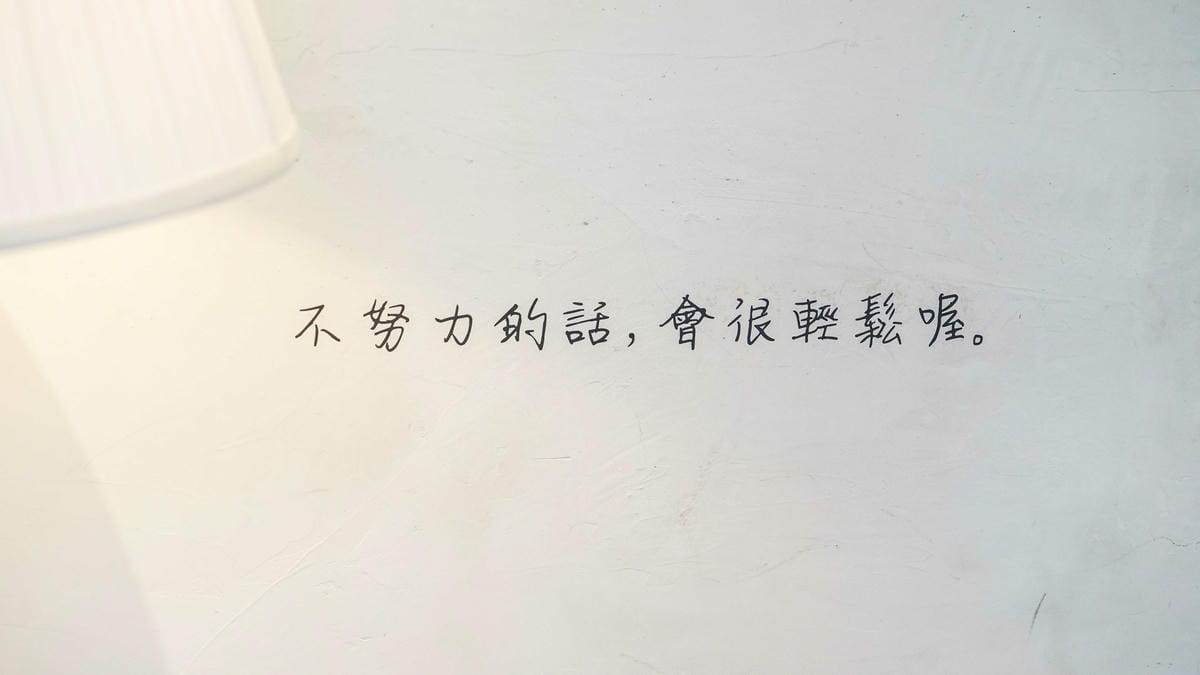 不努力的話,會很輕鬆喔。